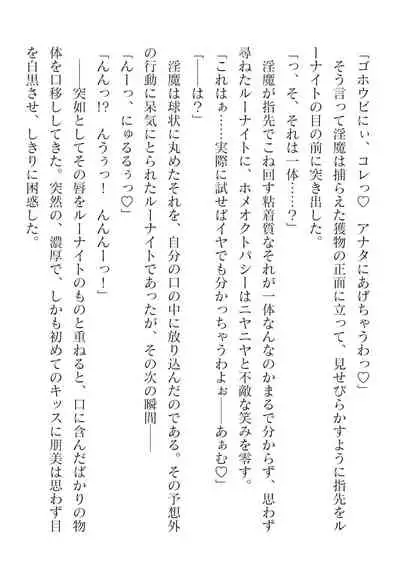 「ゴホウビにぃ、コレっ♡　アナタにあげちゃうわっ♡」
　そう言って淫魔は捕らえた獲物の正面に立って、見せびらかすように指先をル
ーナイトの目の前に突き出した。
「っ、そ、それは一体……？」
　淫魔が指先でこね回す粘着質なそれが一体なんなのかまるで分からず、思わず
尋ねたルーナイトに、ホメオクトパシーはニヤニヤと不敵な笑みを零す。
「これはぁ……実際に試せばイヤでも分かっちゃうわよぉ――あぁむ♡」
「――は？」
　淫魔は球状に丸めたそれを、自分の口の中に放り込んだのである。その予想外
の行動に呆気にとられたルーナイトであったが、その次の瞬間――
「んーっ、にゅるるぅっ♡」
「んんっ!?　んうぅっ！　んんんーっ！」
　――突如としてその唇をルーナイトのものと重ねると、口に含んだばかりの物
体を口移ししてきた。突然の、濃厚で、しかも初めてのキッスに朋美は思わず目
を白黒させ、しきりに困惑した。